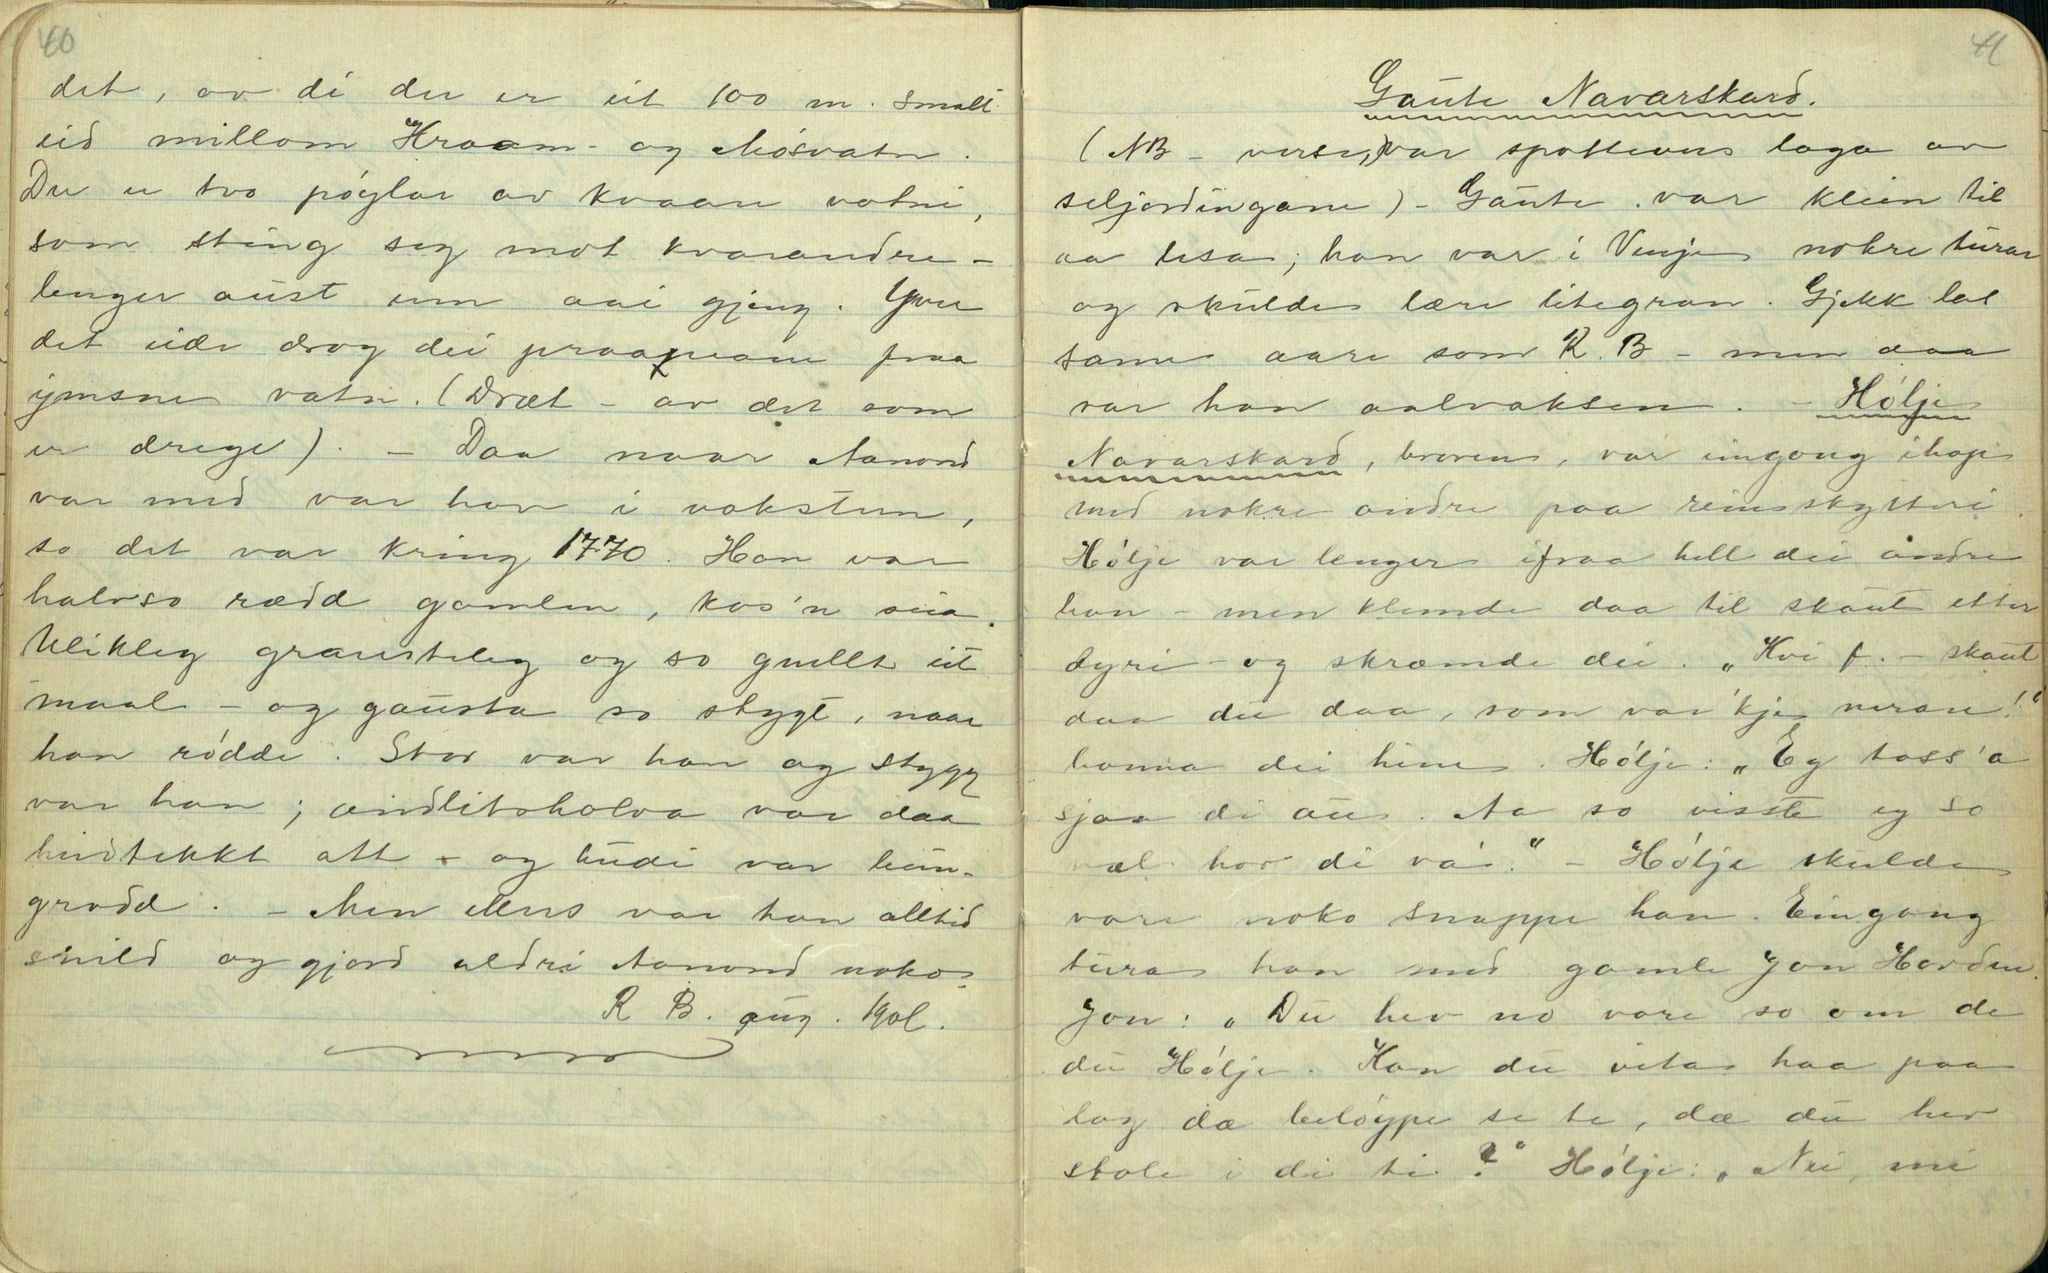 40
det, av di der er eit 100 m. smalt
eid millom Hraam- og Mósvatn.
Der er tvo póglar av kvaare vatni,
som sting seg mot kvarandre -
lenger aust um aai gjeng. Yver
det eide drog dei praamane fraa
ymsne vatn. (Dræt - av det som
er drege). - Daa naar Aanond
var med var han i voksteren,
so det var kring 1770. Han var
halvso rædd gamlen, kas'n sua.
Ulikleg graausteleg og so gnellt eit
maal - og gausta so stygt, naar
hanródde. Stor var han og stygg
var han; andlitsholva var daa
hindtekkt att - og hudi var bein-
grodd. - Men elles var han alltid
snild og gjord aldri Aanond noko.
R B. aug. 1901.
41
Gaute Navarskard.
(NB - versi, var spottevers laga av
seljordingane) - Gaute var klein til
aa lesa; han var i Vinje nokre turar
og skulde lære litegran. Gjekk lol
same aare som R. B - men daa
var han aalvaksen. - Hólje
Navarskard, broren, var eingong ihop
med nokre andre paa reinsskytteri.
Hólje var lenger ifraa hell dei andre
han - men klemde daa til skaut etter
dyri - og skræmde dei. "Kvi f. - skaut
daa du daa, som var'kje nerare!"
banna dei hine. Hólje: "Eg toss'a
sjaa di au. Aa so visste eg so
væl hor di va'." - Hólje skulde
vore noko snappe han. Eingong
tura han med gamle Jon Harden.
Jon: "Du hev no vore so om de
du Hólje. Kan du vita haa paa
lag dæ beløype se te, dæ du hev
stole i di ti?" Hólje: "Nei, mi